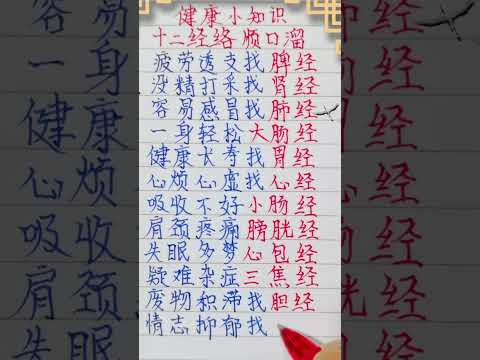 健康小知识
十二经络顺口溜
疲劳透支找脾经
没精打采找肾经
容易感冒找肺经
一身轻松大肠经
健康长寿找胃经
心烦心虚找心经
吸收不好小肠经
肩颈疼痛膀胱经
失眠多梦心包经
疑难杂症三焦经
废物积滞找胆经
情志抑郁找